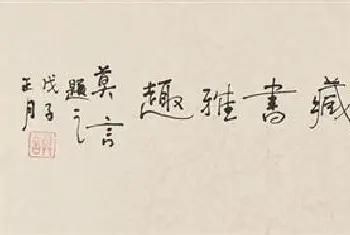 藏书雅趣
莫言
题之
戊子
正月